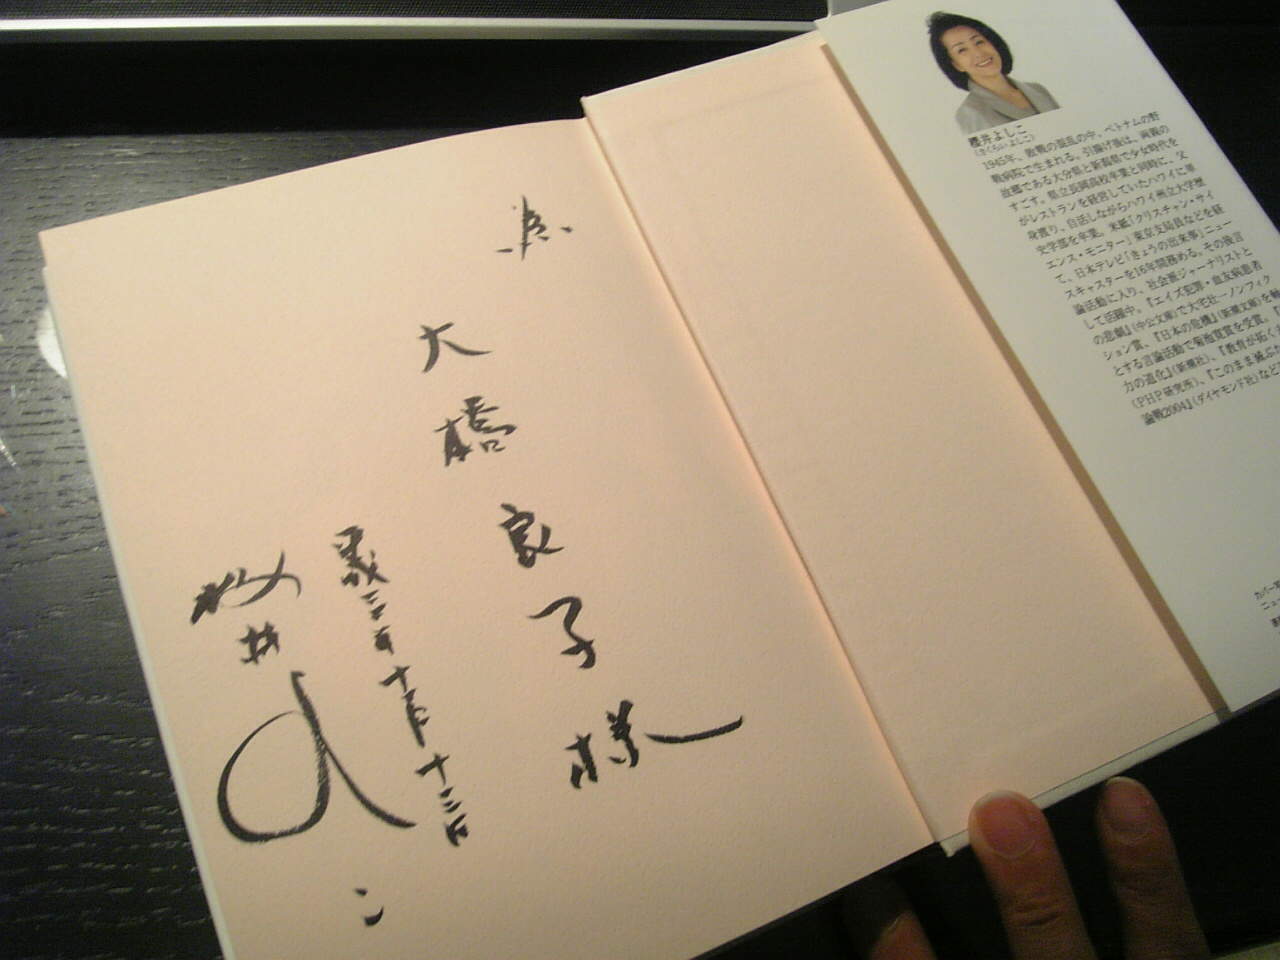 櫻井よしこ
(さくらいよしこ)
1945年、敗戦の混乱の中、ベトナムの野
戦病院で生まれる。引揚げ後は、両親の
故郷である大分県と新潟県で少女時代を
すごす。県立長岡高校卒業と同時に、父
がレストランを経営していたハワイに単
身渡り、自活しながらハワイ州立大学歴
史学部を卒業。米紙「クリスチャン・サイ
エンス・モニター」東京支局員などを経
て、日本テレビ「きょうの出来事」ニュー
スキャスターを16年間務める。その後言
論活動に入り、社会派ジャーナリストと
して活躍中。『エイズ犯罪・血友病患者
の悲劇』(中公文庫)で大宅壮一ノンフィク
ション賞、『日本の危機』(新潮文庫)を軸
とする言論活動で菊池寛賞を受賞。
力の道化』(新潮社)、『教育が拓く
(PHP研究所)、『このまま滅ぶな
論戦2004』(ダイヤモンド社)など
カバー写
ニュ
為
大橋良子様
櫻井よしこ